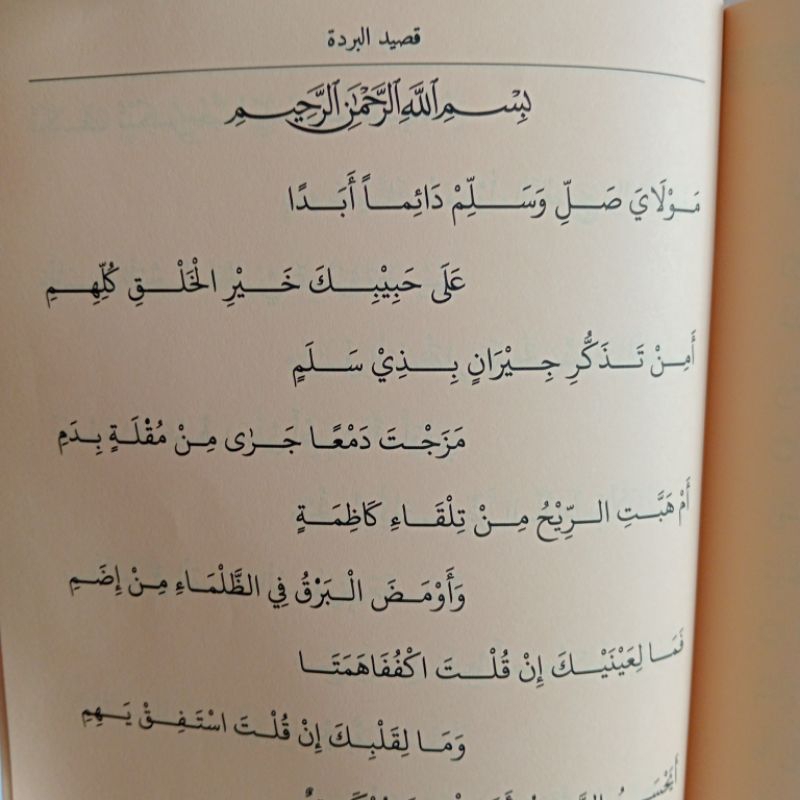 قصيد البردة
بِسْمِ اللَّهِ الرَّحْمَٰنِ الرَّحِيمِ
مَوْلَايَ صَلِّ وَسَلِّمْ دَائِماً أَبَدًا
عَلَى حَبِيْبِكَ خَيْرِ الْخَلْقِ كُلِّهِمِ
أَمِنْ تَذَكُّرِ جِيْرَانٍ بِذِيْ سَلَمٍ
مَزَجْتَ دَمْعًا جَرٰى مِنْ مُقْلَةٍ بِدَمِ
أَمْ هَبَّتِ الرِّيْحُ مِنْ تِلْقَاءِ كَاظِمَةٍ
وَأَوْمَضَ الْبَرْقُ فِي الظَّلْمَاءِ مِنْ إِضَمِ
فَمَا لِعَيْنَيْكَ إِنْ قُلْتَ اكْفُفَاهَمَتَا
وَمَا لِقَلْبِكَ إِنْ قُلْتَ اسْتَفِقْ يَهِمِ